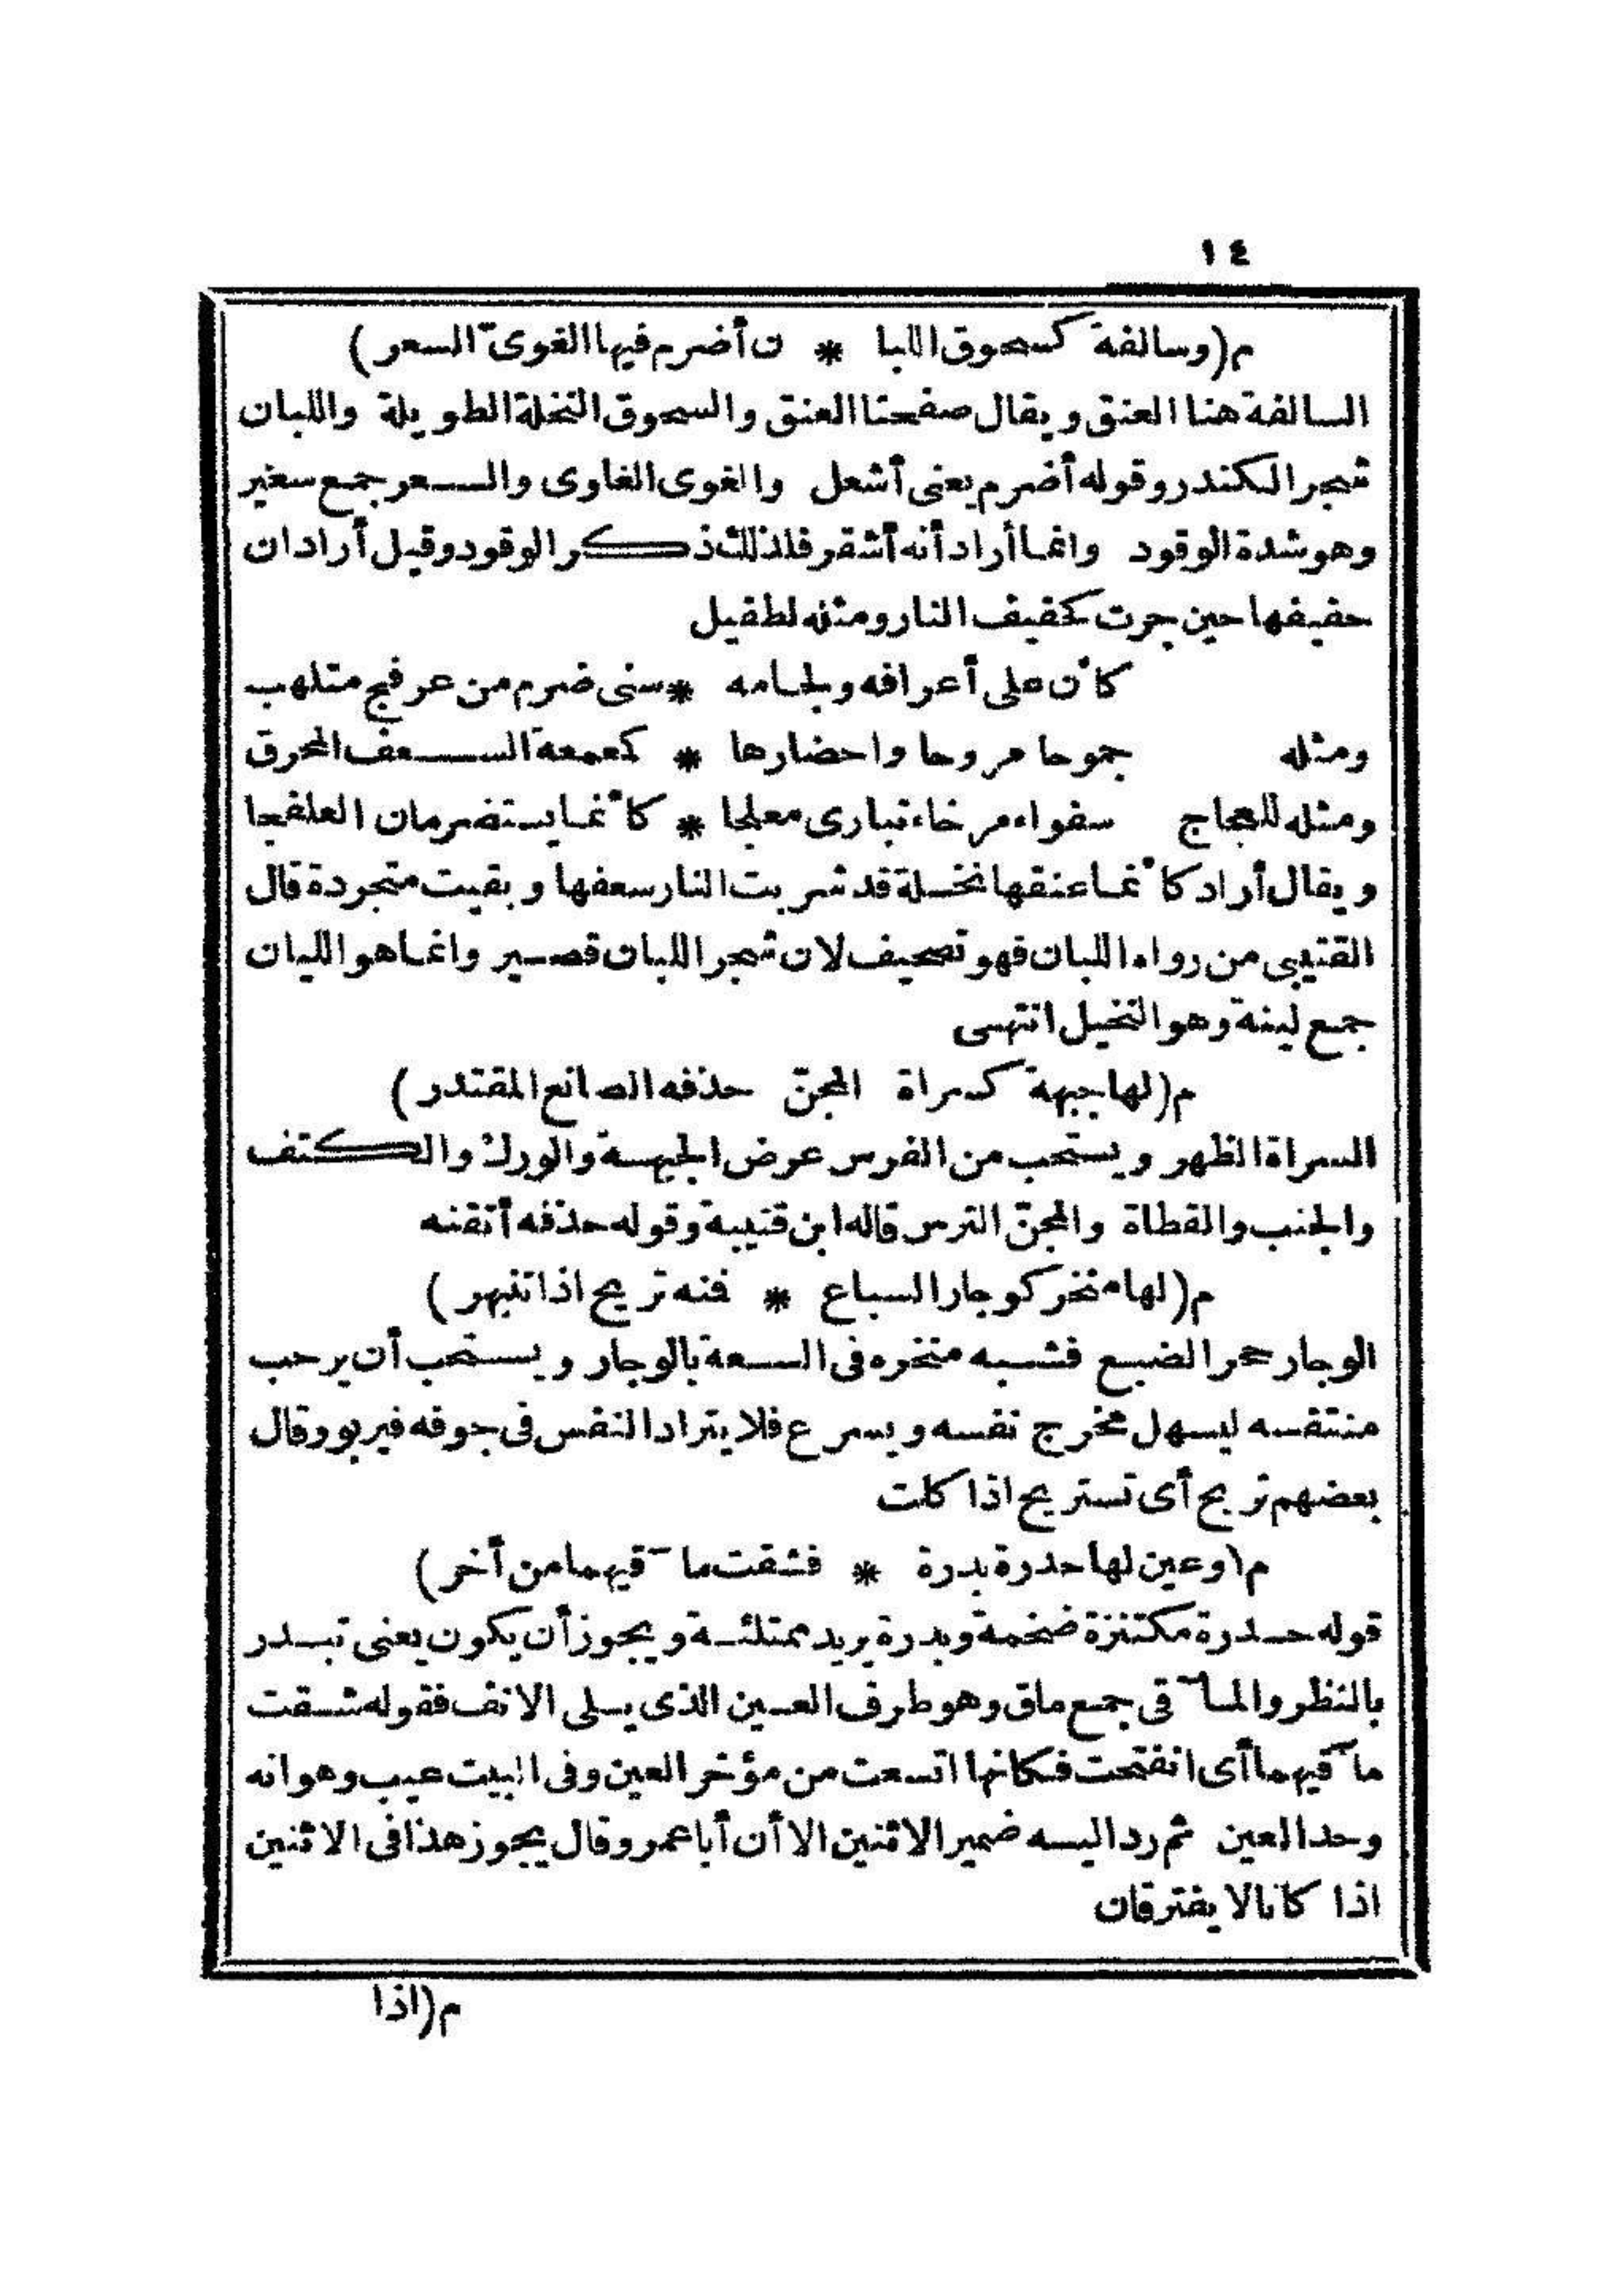 ١٤
م(وسالفة كسحوق اللبا * ن أضرم فيها الغوىّ السعر)
السالفة هنا العنق ويقال صفحتا العنق والسحوق النخلة الطويلة واللبان
شجر الكندر وقوله أضرم يعنى أشعل والغوى الغاوى والسعر جمع سعير
وهو شدة الوقود وانما أراد أنه أشقر فلذلك ذكر الوقود وقيل أراد ان
حفيفها حين جرت كحفيف النار ومثله لطفيل
كأن على أعرافه ولجامه * سنى ضرم من عرفج متلهب
ومثله جموحا مروحا واحضارها * كمعمعة السعف المحرق
ومثله للعجاج سفواء مرخاء تبارى معلجا * كأنما يستضرمان العلفجا
ويقال أراد كأنما عنقها نخلة قد شربت النار سعفها وبقيت متجردة قال
القتيبى من رواه اللبان فهو تصحيف لان شجر اللبان قصير وانما هو الليان
جمع لينة وهو النخيل انتهى
م(لها جبهة كسراة المجنّ حذفه الصانع المقتدر)
السراة الظهر ويستحب من الفرس عرض الجبهة والورك والكتف
والجنب والقطاة والمجنّ الترس قاله ابن قتيبة وقوله حذفه أتقنه
م(لها منخر كوجار السباع * فنه تريح اذا تنبهر)
الوجار جحر الضبع فشبه منخره فى السعة بالوجار ويستحب أن يرحب
منتفسه ليسهل مخرج نفسه ويسرع فلا يتراد النفس فى جوفه فيربو وقال
بعضهم تريح أى تستريح اذا كلت
م(وعين لها حدرة بدرة * فشقت مآقيهما من أخر)
قوله حدرة مكتنزة ضخمة وبدرة يريد ممتلئة ويجوز أن يكون يعنى تبدر
بالنظر والمآقى جمع ماق وهو طرف العين الذى يلى الانف فقوله شقت
مآقيهما أى انفتحت فكانها اتسعت من مؤخر العين وفى البيت عيب وهو انه
وحد العين ثم رد اليه ضمير الاثنين الا أن أبا عمرو قال يجوز هذا فى الاثنين
اذا كانا لا يفترقان
م(اذا